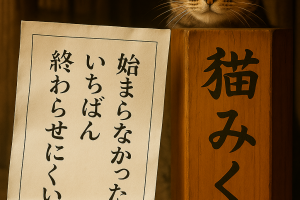 始まらなかった
いちばん
終わらせにくい
猫みく